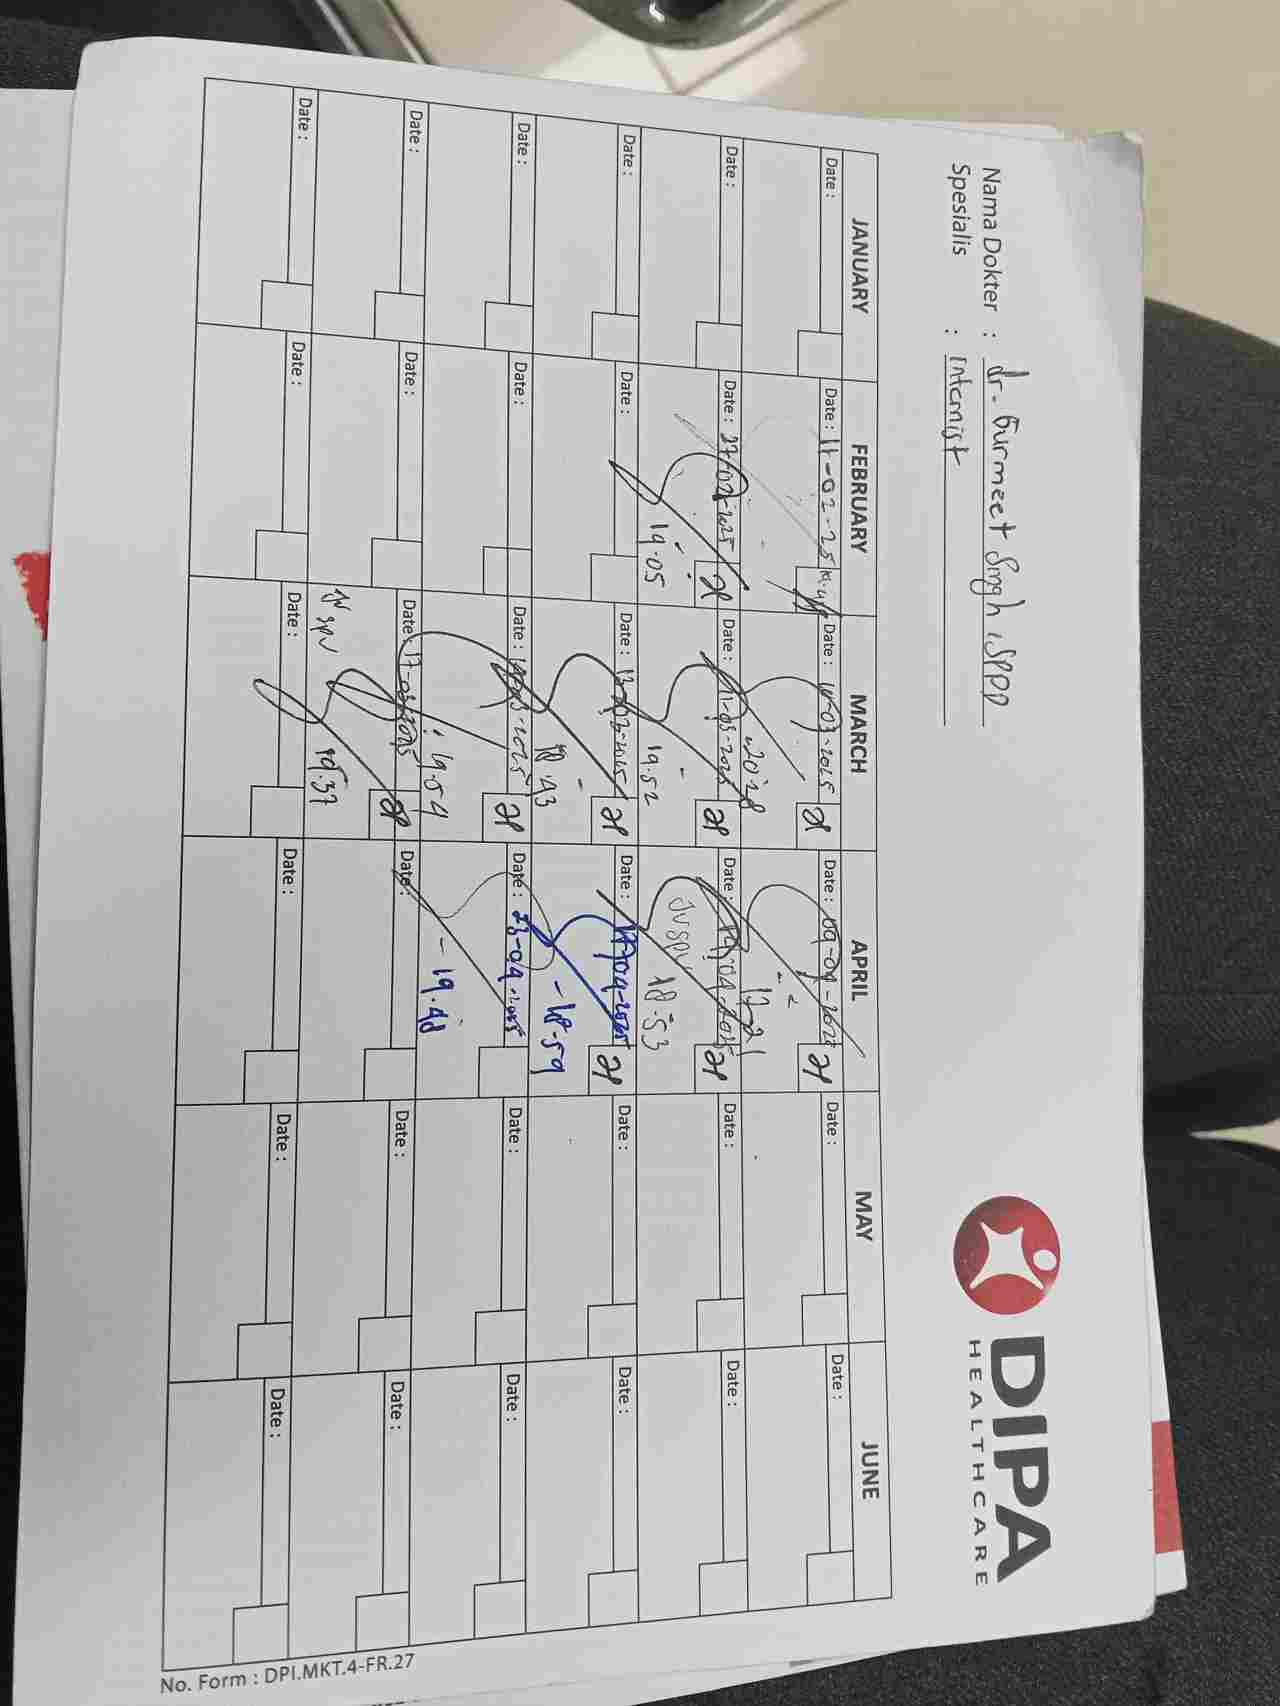 Nama Dokter : dr. Gurmeet Singh, SpPD
Spesialis : Internist
DIPA
HEALTHCARE
JANUARY FEBRUARY MARCH APRIL MAY JUNE
Date : Date : 11-02-25 Date : 10-03-2025 Date : 09-04-2025 Date : Date :
20.28
Date : Date : 27-02-2025 Date : 11-03-2025 Date : 14-04-2025 Date : Date :
19.05 19.52 JV SPV 18.53
Date : Date : Date : 13-03-2025 Date : 17-04-2025 Date : Date :
18.43 - 18.59
Date : Date : Date : Date : 23-04-2025 Date : Date :
19.54 - 19.48
Date : Date : Date : 17-03-2025 Date : Date : Date :
JV SPV 19.37
Date : Date : Date : Date : Date : Date :
No. Form : DPI.MKT.4-FR.27